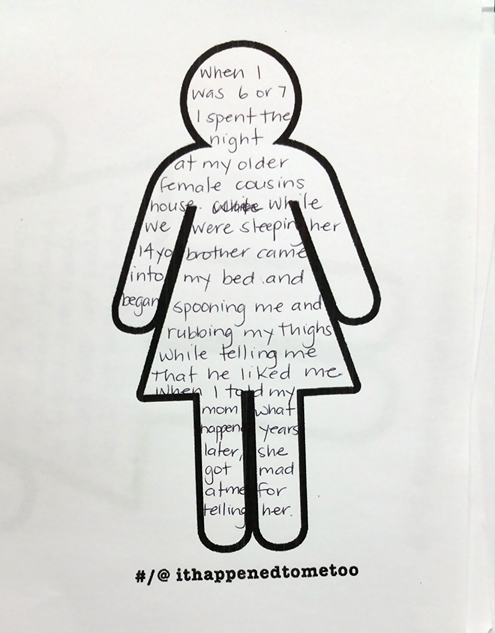 When I
was 6 or 7
I spent the
night
at my older
female cousins
house. while
we were sleeping her
14yo brother came
into my bed and
began spooning me and
rubbing my thighs
while telling me
that he liked me
When I told my
mom what
happend years
later, she
got mad
at me for
telling her.
#/@ ithappenedtometoo